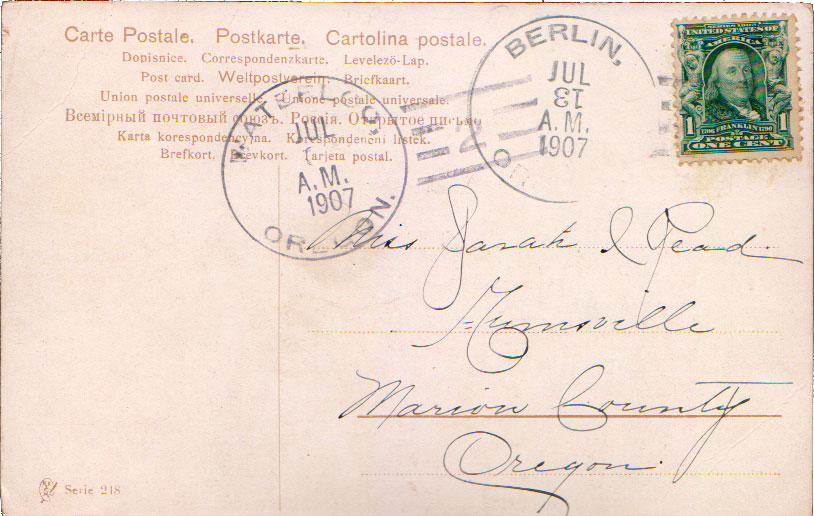 Carte Postale. Postkarte. Cartolina postale.
Dopisnice. Correspondenzkarte. Levelezö-Lap.
Post card. Weltpostverein. Briefkaart.
Union postale universelle. Unione postale universale.
Всемірный почтовый союзъ. Россія. Открытое письмо
Karta korespondencyjna. Korespondencni listek.
Brefkort. Brevkort. Tarjeta postal.
WATERLOO,
JUL
A.M.
1907
OREGON.
2
BERLIN,
JUL
31
A.M.
1907
OR
SERIES 1902
UNITED STATES OF
AMERICA
1 1
1706 FRANKLIN 1790
POSTAGE
ONE CENT
Miss Sarah I Read.
Aumsville
Marion County
Oregon.
Serie 218